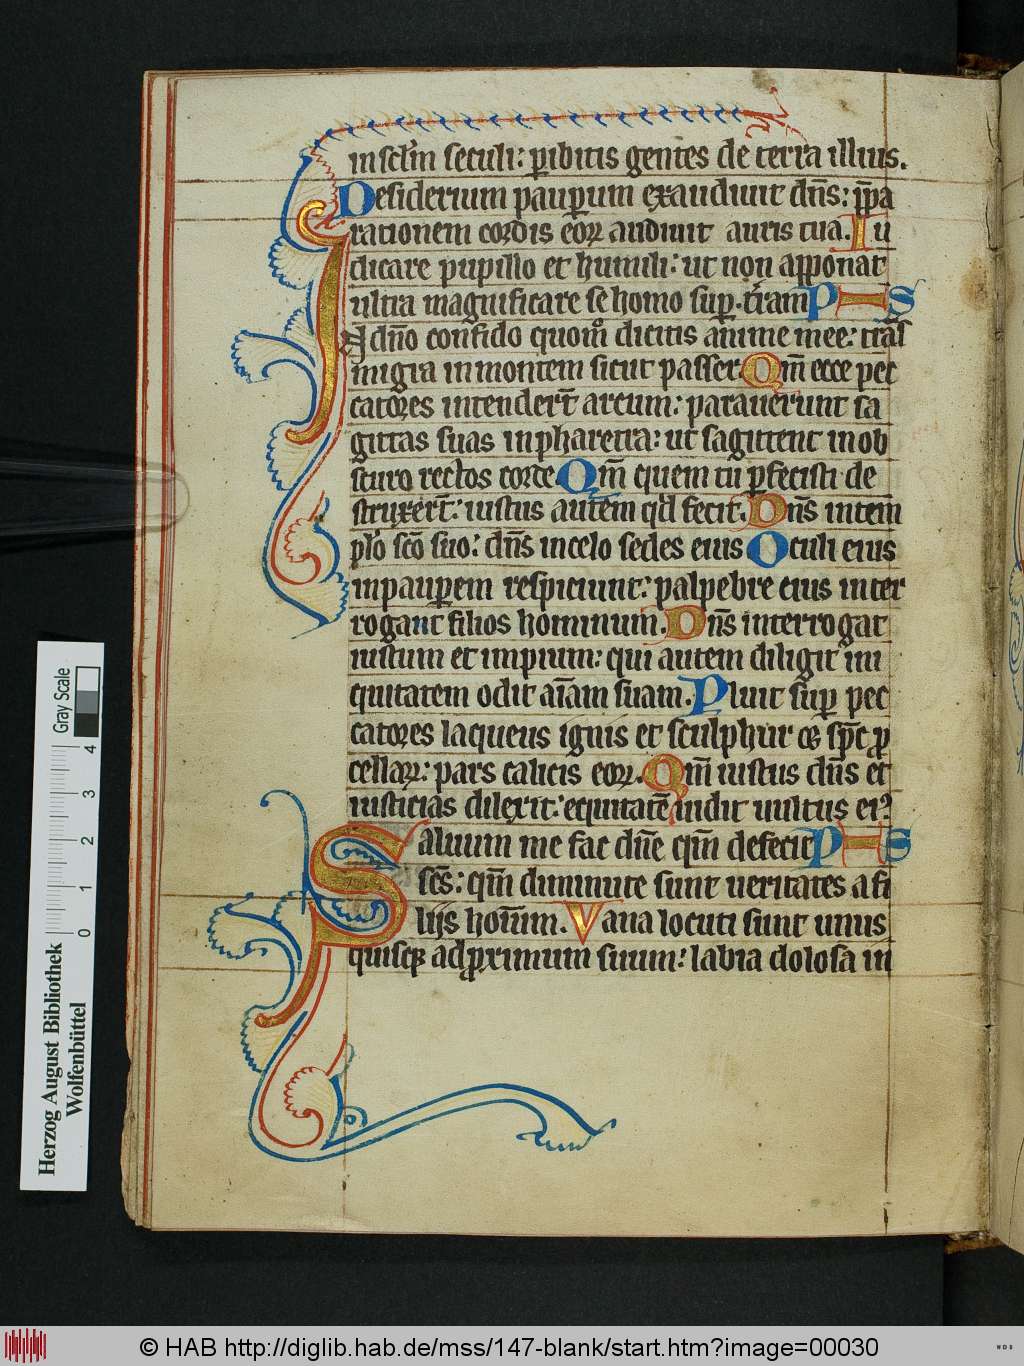 in sclm seculi: pibitis gentes de terra illius.
Desiderium paupum exaudiuit dns: ppa
rationem cordis eor audiuit auris tua. Iu
dicare pupillo et humili: ut non apponat
ultra magnificare se homo sup terram PHS
In dno confido quomo dicitis anime mee: tras
migra in montem sicut passer. Qm ecce pec
catores intendert arcum: parauerunt sa
gittas suas in pharetra: ut sagittent in ob
scuro rectos corde. Qm quem tu pfecisti de
struxert: iustus autem qd fecit. Dns in tem
plo sco suo: dns in celo sedes eius Oculi eius
in paupem respiciunt: palpebre eius inter
rogant filios hominum. Dns interrogat
iustum et impium: qui autem diligit ini
quitatem odit aiam suam. Pluit sup pec
catores laqueus ignis et sculphur et spc p
cellar: pars calicis eor. Qm iustus dns et
iusticias dilexit: equitate uidit uultus ei
Saluum me fac dne qm defecit PHS
scs: qm diminute sunt ueritates a fi
liis hoium. Vana locuti sunt unus
quisq ad pximum suum: labia dolosa in
Herzog August Bibliothek
Wolfenbüttel
Gray Scale
0 1 2 3 4
© HAB http://diglib.hab.de/mss/147-blank/start.htm?image=00030